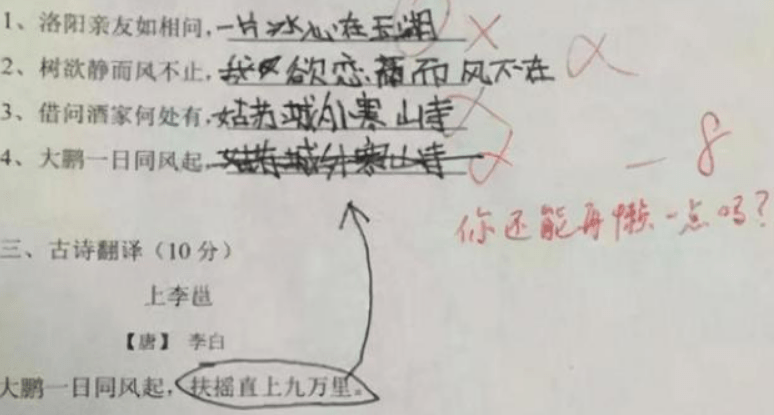 1、洛阳亲友如相问,一片冰心在玉湖
2、树欲静而风不止,我欲恋藕而风不在
3、借问酒家何处有,姑苏城外寒山寺
4、大鹏一日同风起,姑苏城外寒山寺
-8
你还能再懒一点吗?
三、古诗翻译(10分)
上李邕
【唐】 李白
大鹏一日同风起,扶摇直上九万里。